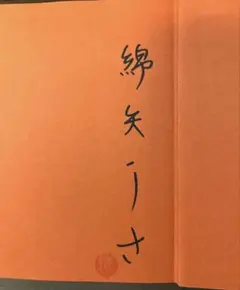 綿矢りさ